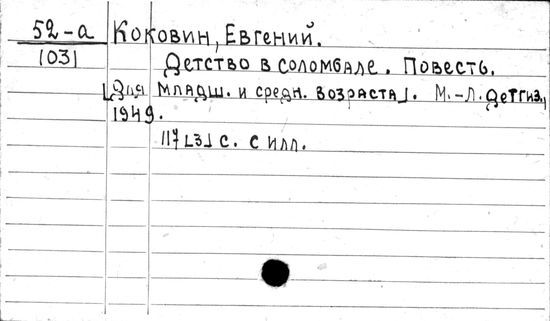 52-а Коковин, Евгений.
1031 Детство в Соломбале. Повесть.
[Для младш. и средн. возраста]. М.-Л. Детгиз,
1949.
117[3] с. с илл.